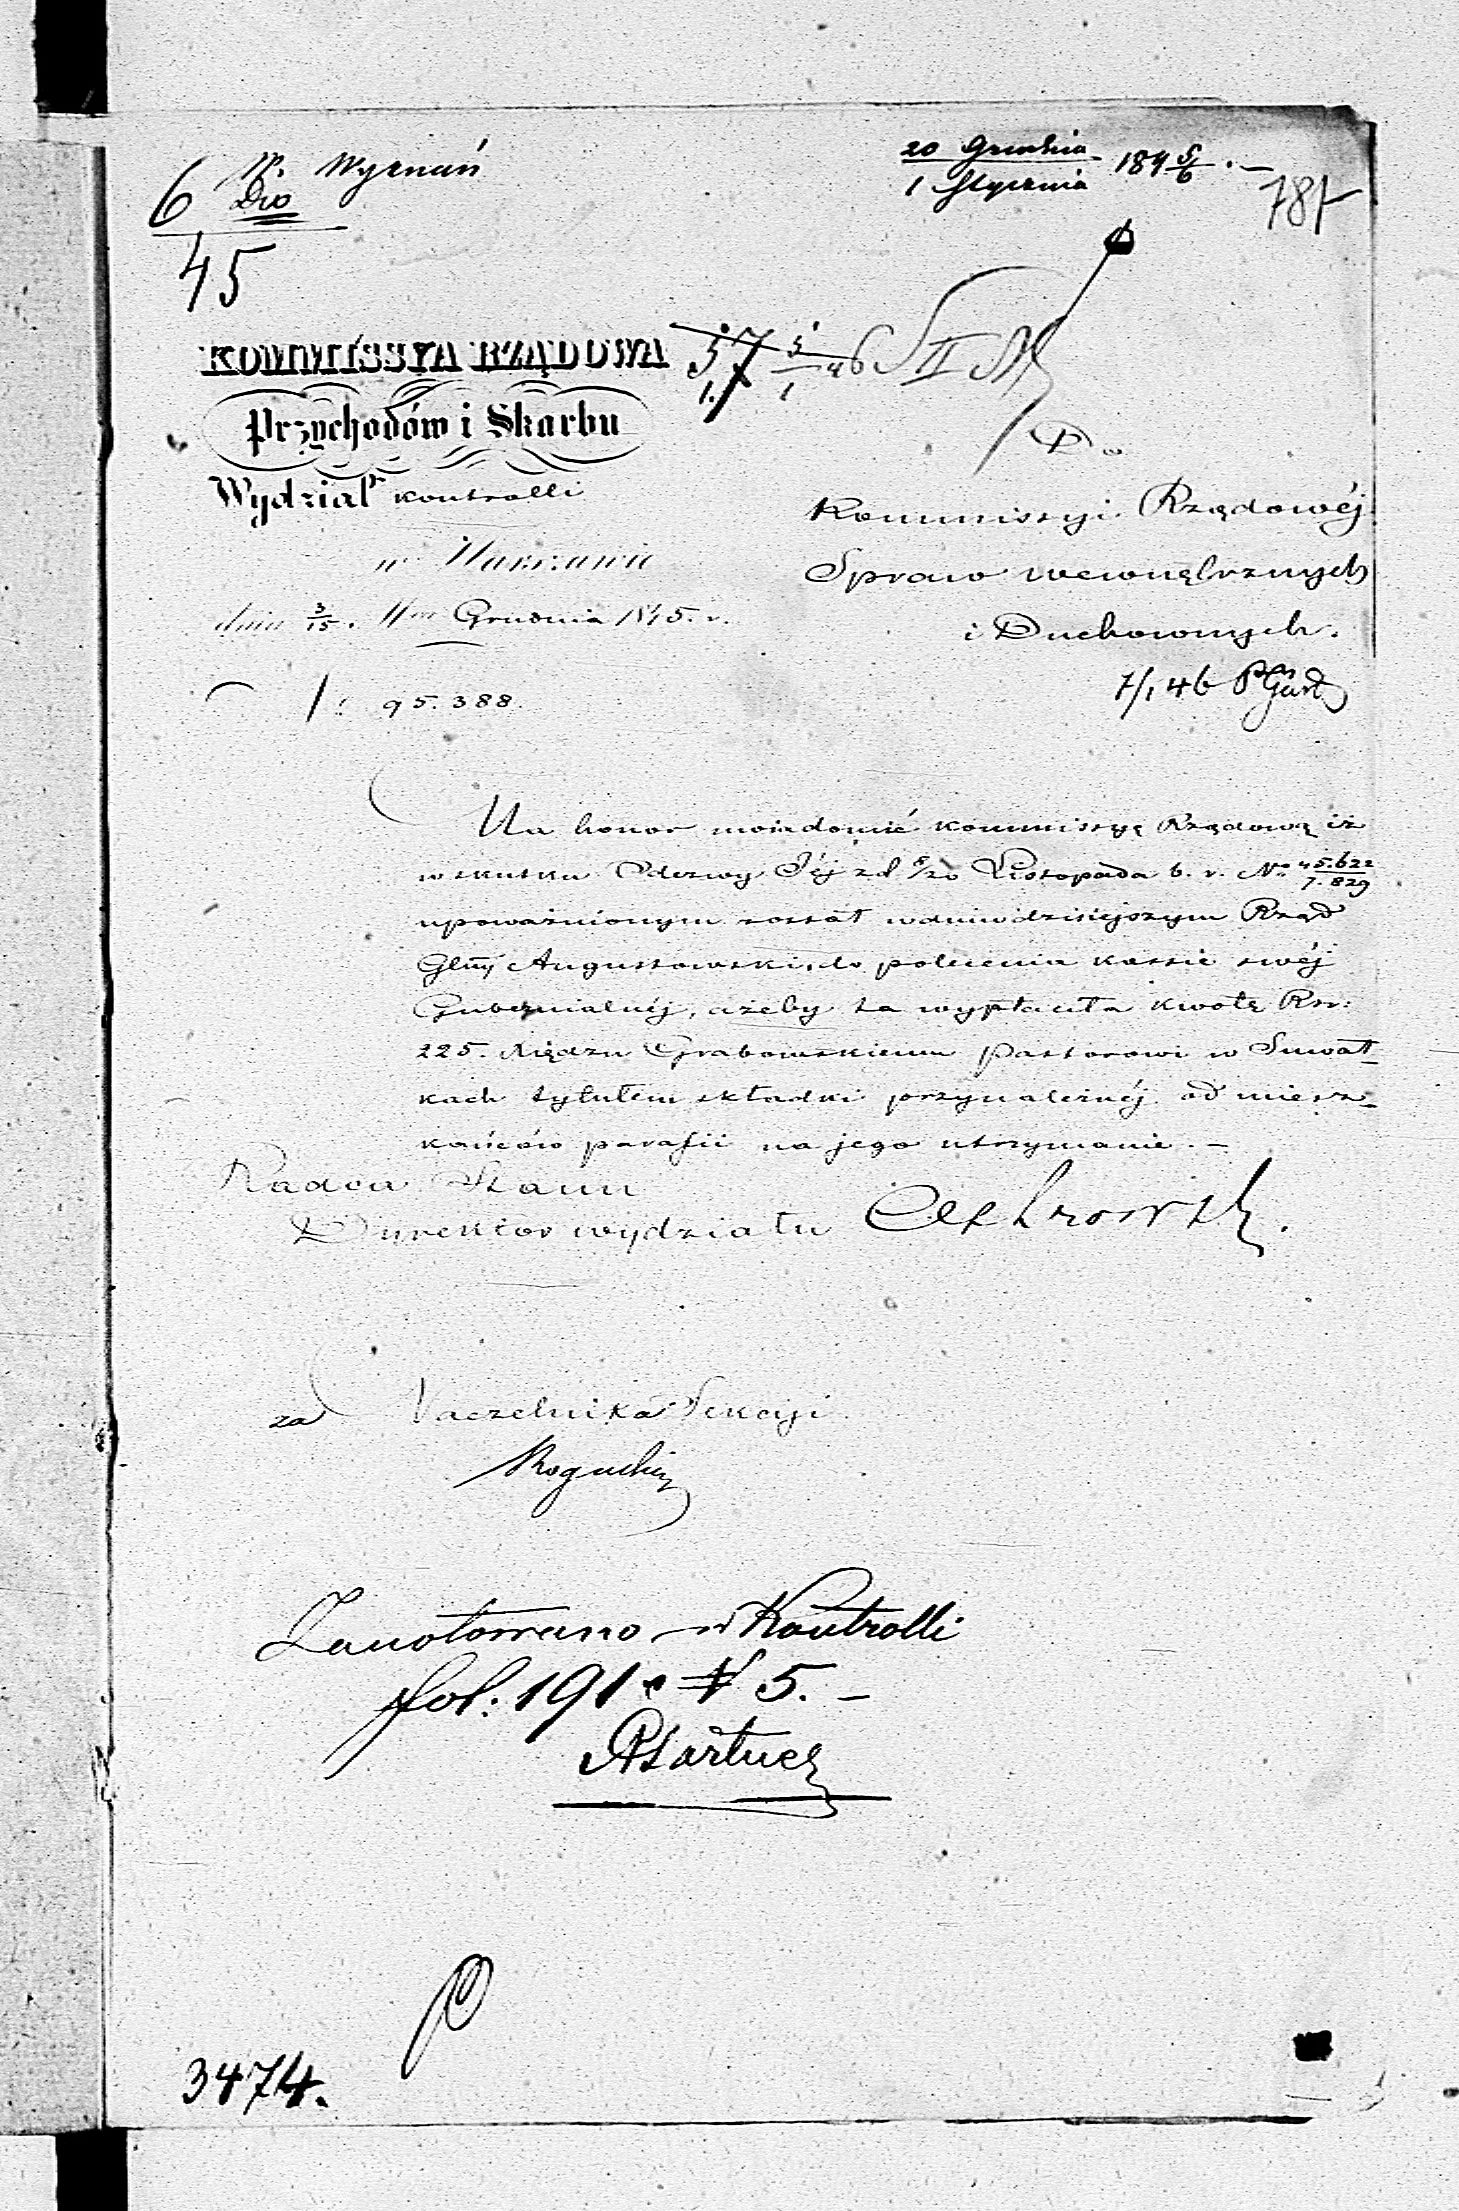 W. Wyznań
Dio
6
45
20 Grudnia
1 Stycznia 184 5/6. –
787
KOMMISSYA RZĄDOWA
Przychodów i Skarbu
Wydział Kontrolli
w Warszawie
dnia 3/15. Mca Grudnia 1845. r.
95.388.
57
II
Do
Kommissyi Rządowéj
Spraw wewnętrznych
i Duchownych.
7/1 46
Ma honor zawiadomić Kommissyę Rządową iż
w skutku Odezwy Jéj z d 8/20 Listopada b. r. No 45.622/7.829
upoważnionym został w dniu dzisiejszym Rząd
Glny Augustowski, do polecenia kassie swéj
Gubernialnéj, ażeby ta wypłaciła kwotę Rsr:
225. Xiędzu Grabowskiemu Pastorowi w Suwał-
kach tytułem składki przynależnéj od miesz-
kańców parafii na jego utrzymanie. –
Radca Stanu
Dyrektor wydziału
za Naczelnika Sekcyi
Rogucki
Zanotowano w Kontrolli
fol: 191 N 5. –
3474.